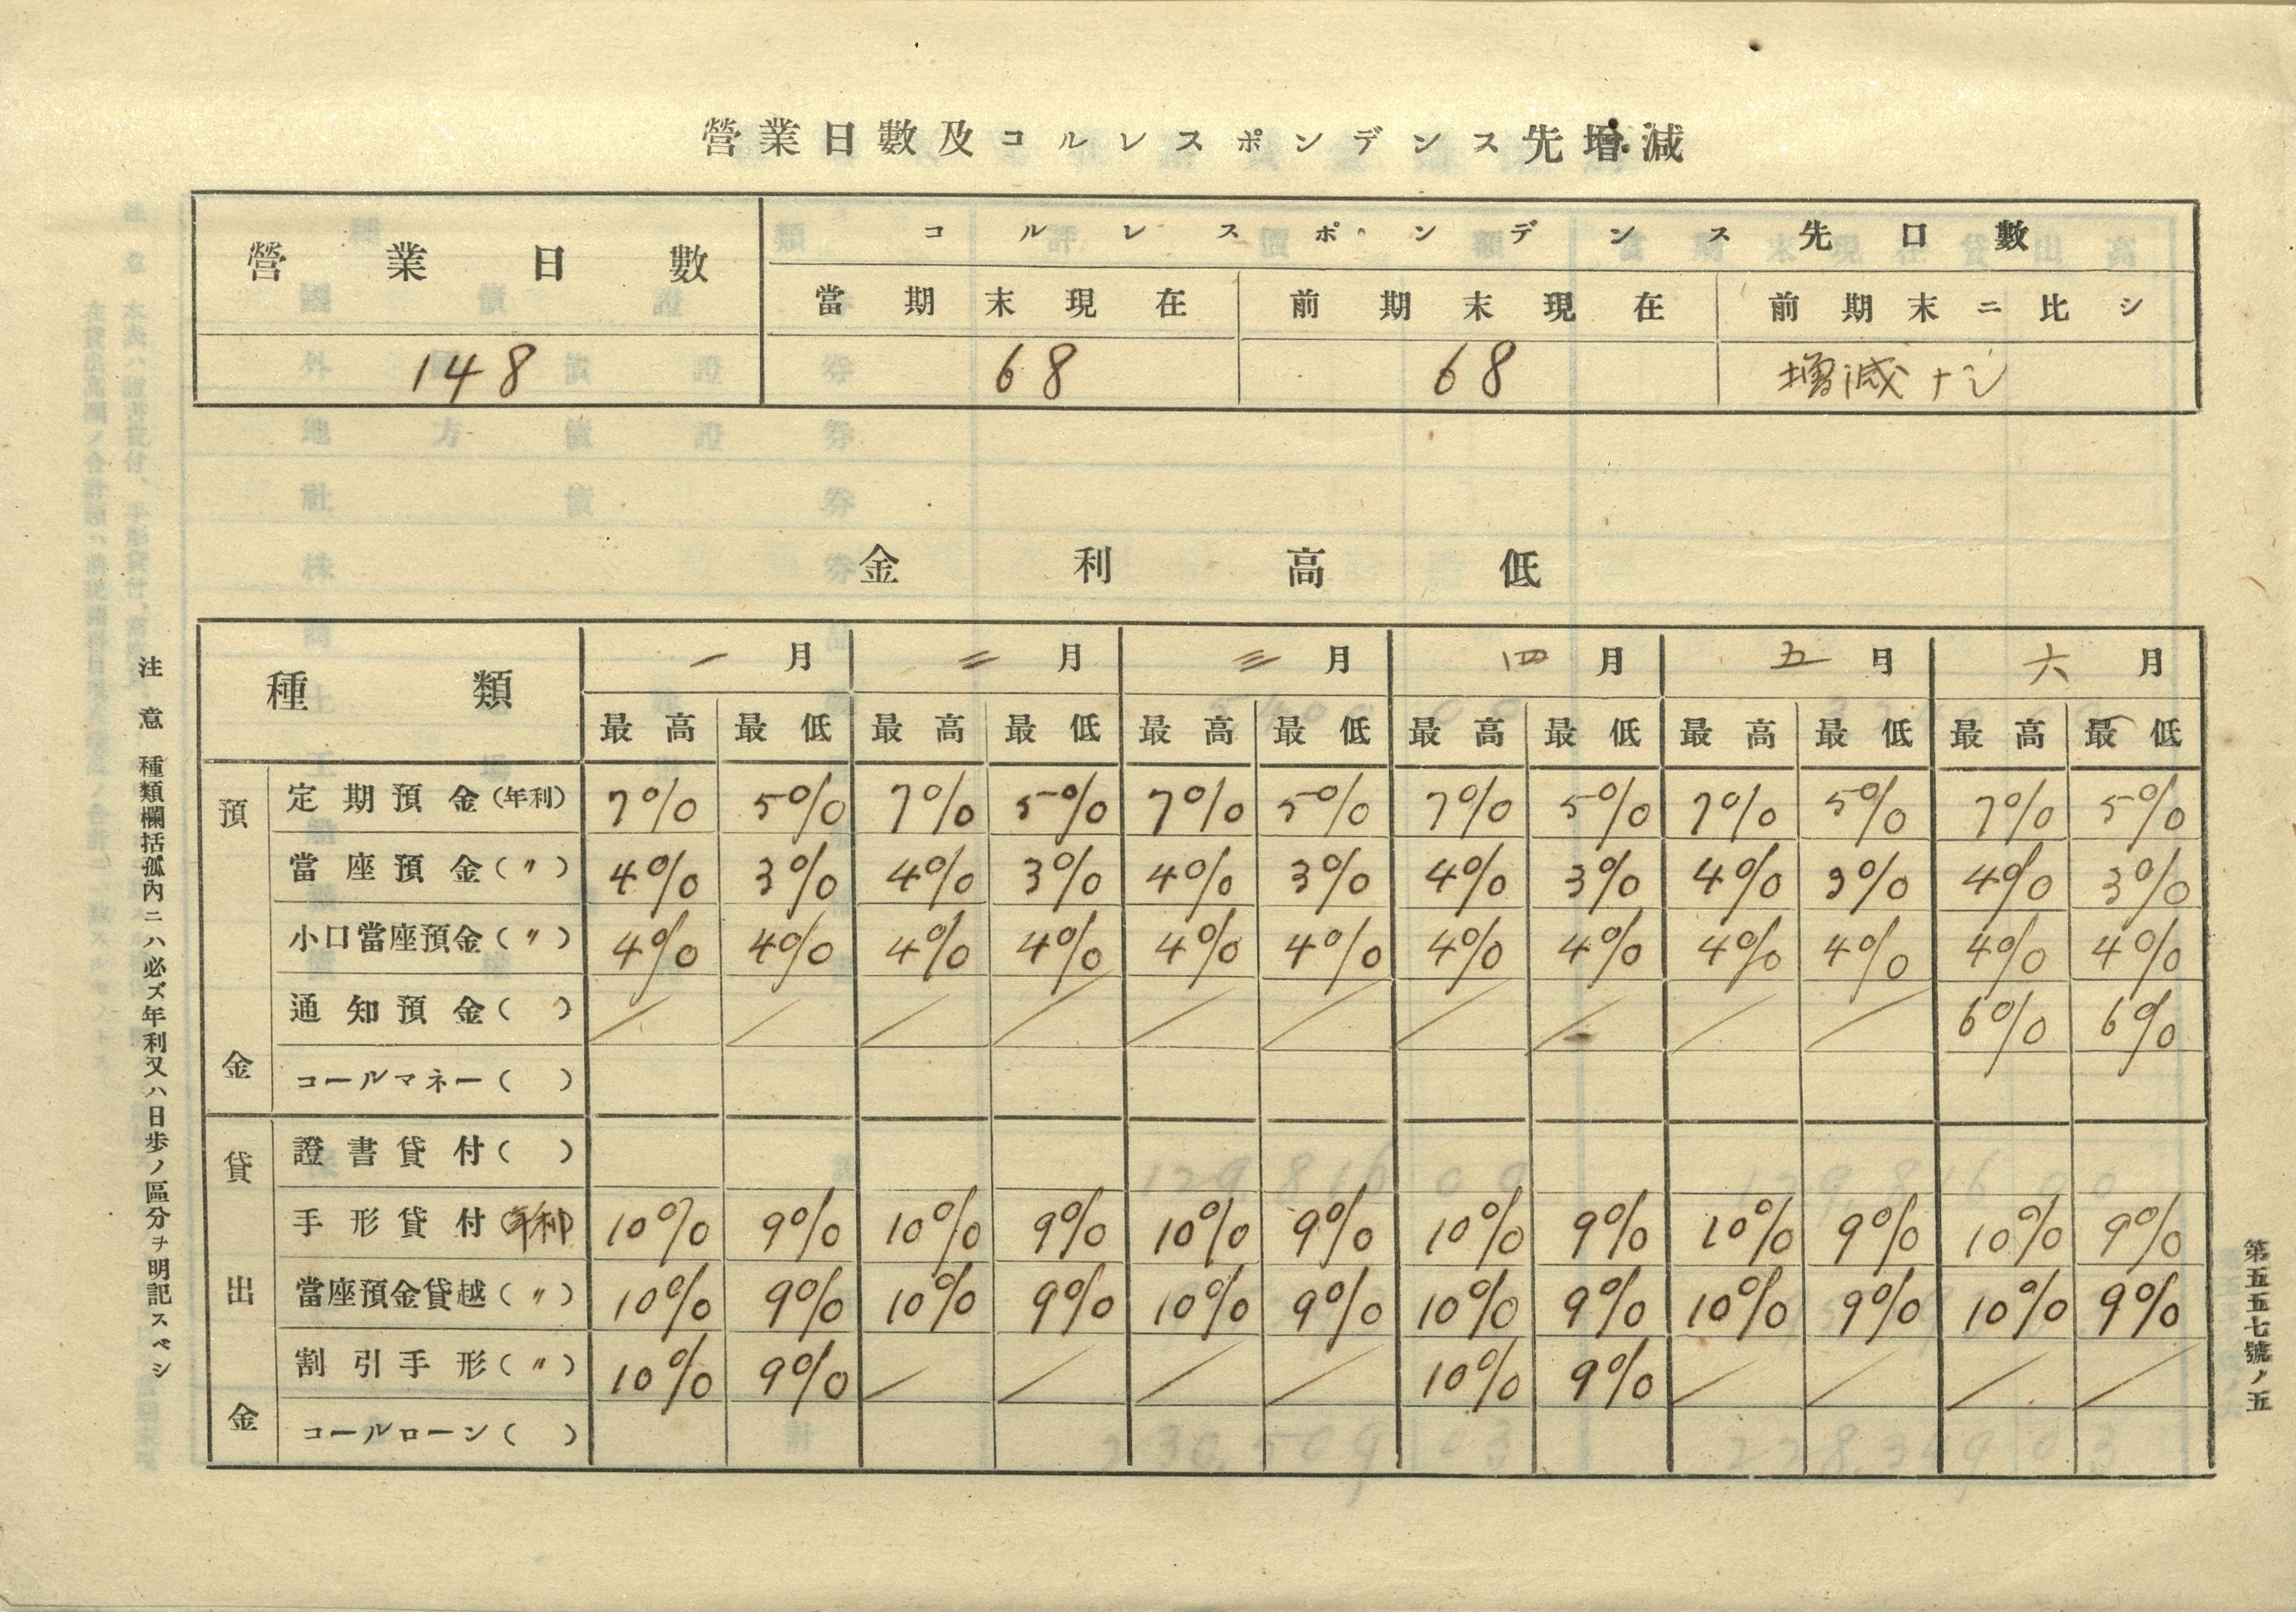 營業日數及コルレスポンデンス先增減
營業日數 コルレスポンデンス先口數
當期末現在 前期末現在 前期末ニ比シ
148 68 68 增減ナシ
金利高低
種類 一月 二月 三月 四月 五月 六月
最高 最低 最高 最低 最高 最低 最高 最低 最高 最低 最高 最低
預金
定期預金(年利) 7% 5% 7% 5% 7% 5% 7% 5% 7% 5% 7% 5%
當座預金(〃) 4% 3% 4% 3% 4% 3% 4% 3% 4% 3% 4% 3%
小口當座預金(〃) 4% 4% 4% 4% 4% 4% 4% 4% 4% 4% 4% 4%
通知預金( ) / / / / / / / / / / 6% 6%
コールマネー( )
貸出金
證書貸付( )
手形貸付(年利) 10% 9% 10% 9% 10% 9% 10% 9% 10% 9% 10% 9%
當座預金貸越(〃) 10% 9% 10% 9% 10% 9% 10% 9% 10% 9% 10% 9%
割引手形(〃) 10% 9% / / / / 10% 9% / / / /
コールローン( )
注意 種類欄括孤內ニハ必ズ年利又ハ日步ノ區分ヲ明記スベシ
第五五七號ノ五